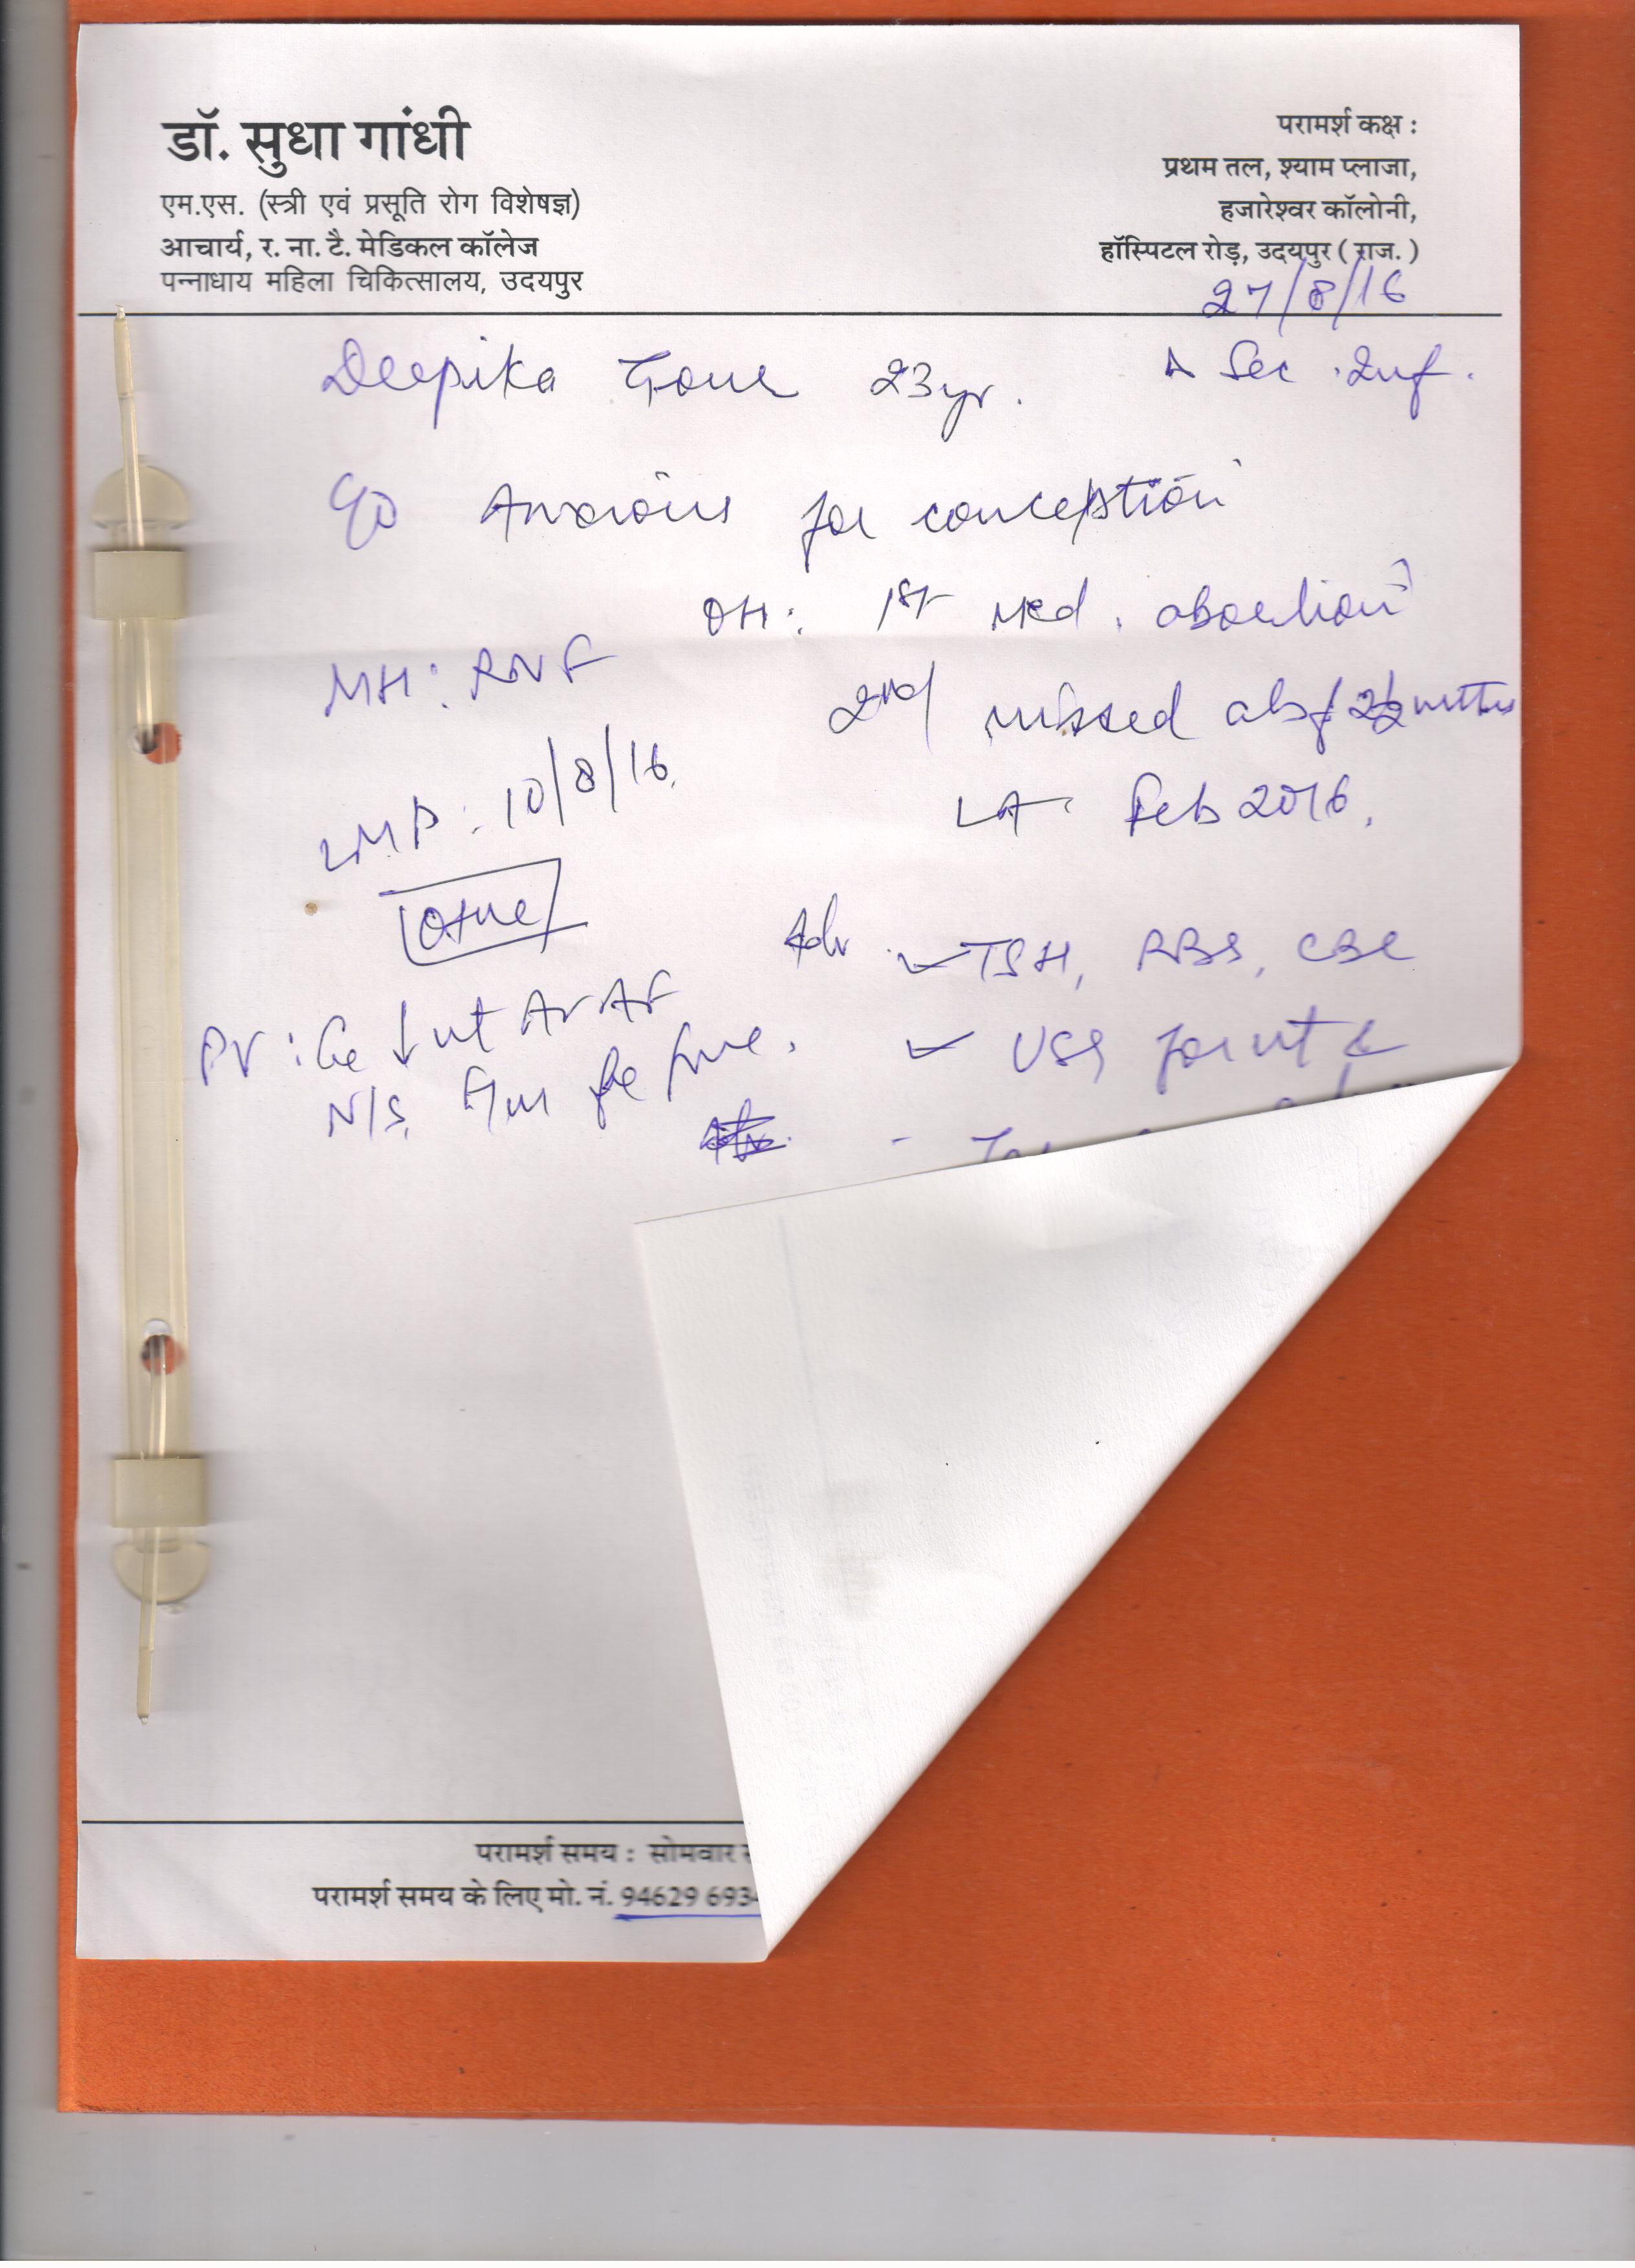 डॉ. सुधा गांधी
एम.एस. (स्त्री एवं प्रसूति रोग विशेषज्ञ)
आचार्य, र. ना. टै. मेडिकल कॉलेज
पन्नाधाय महिला चिकित्सालय, उदयपुर
परामर्श कक्ष :
प्रथम तल, श्याम प्लाजा,
हजारेश्वर कॉलोनी,
हॉस्पिटल रोड़, उदयपुर ( राज. )
27/8/16
Deepika 23yr.
Δ Sec. Inf.
C/o Anxious for conception
OH: 1st Med. abortion
MH: RNF
2nd missed abf 2½ mths
LMP: 10/8/16.
LA: Feb 2016.
Adv. ✓ TSH, RBS, CBC
PV: Cx ↓ ut AV AF
N/S, free.
✓ USG for ut &
परामर्श समय : सोमवार
परामर्श समय के लिए मो. नं. 94629 693